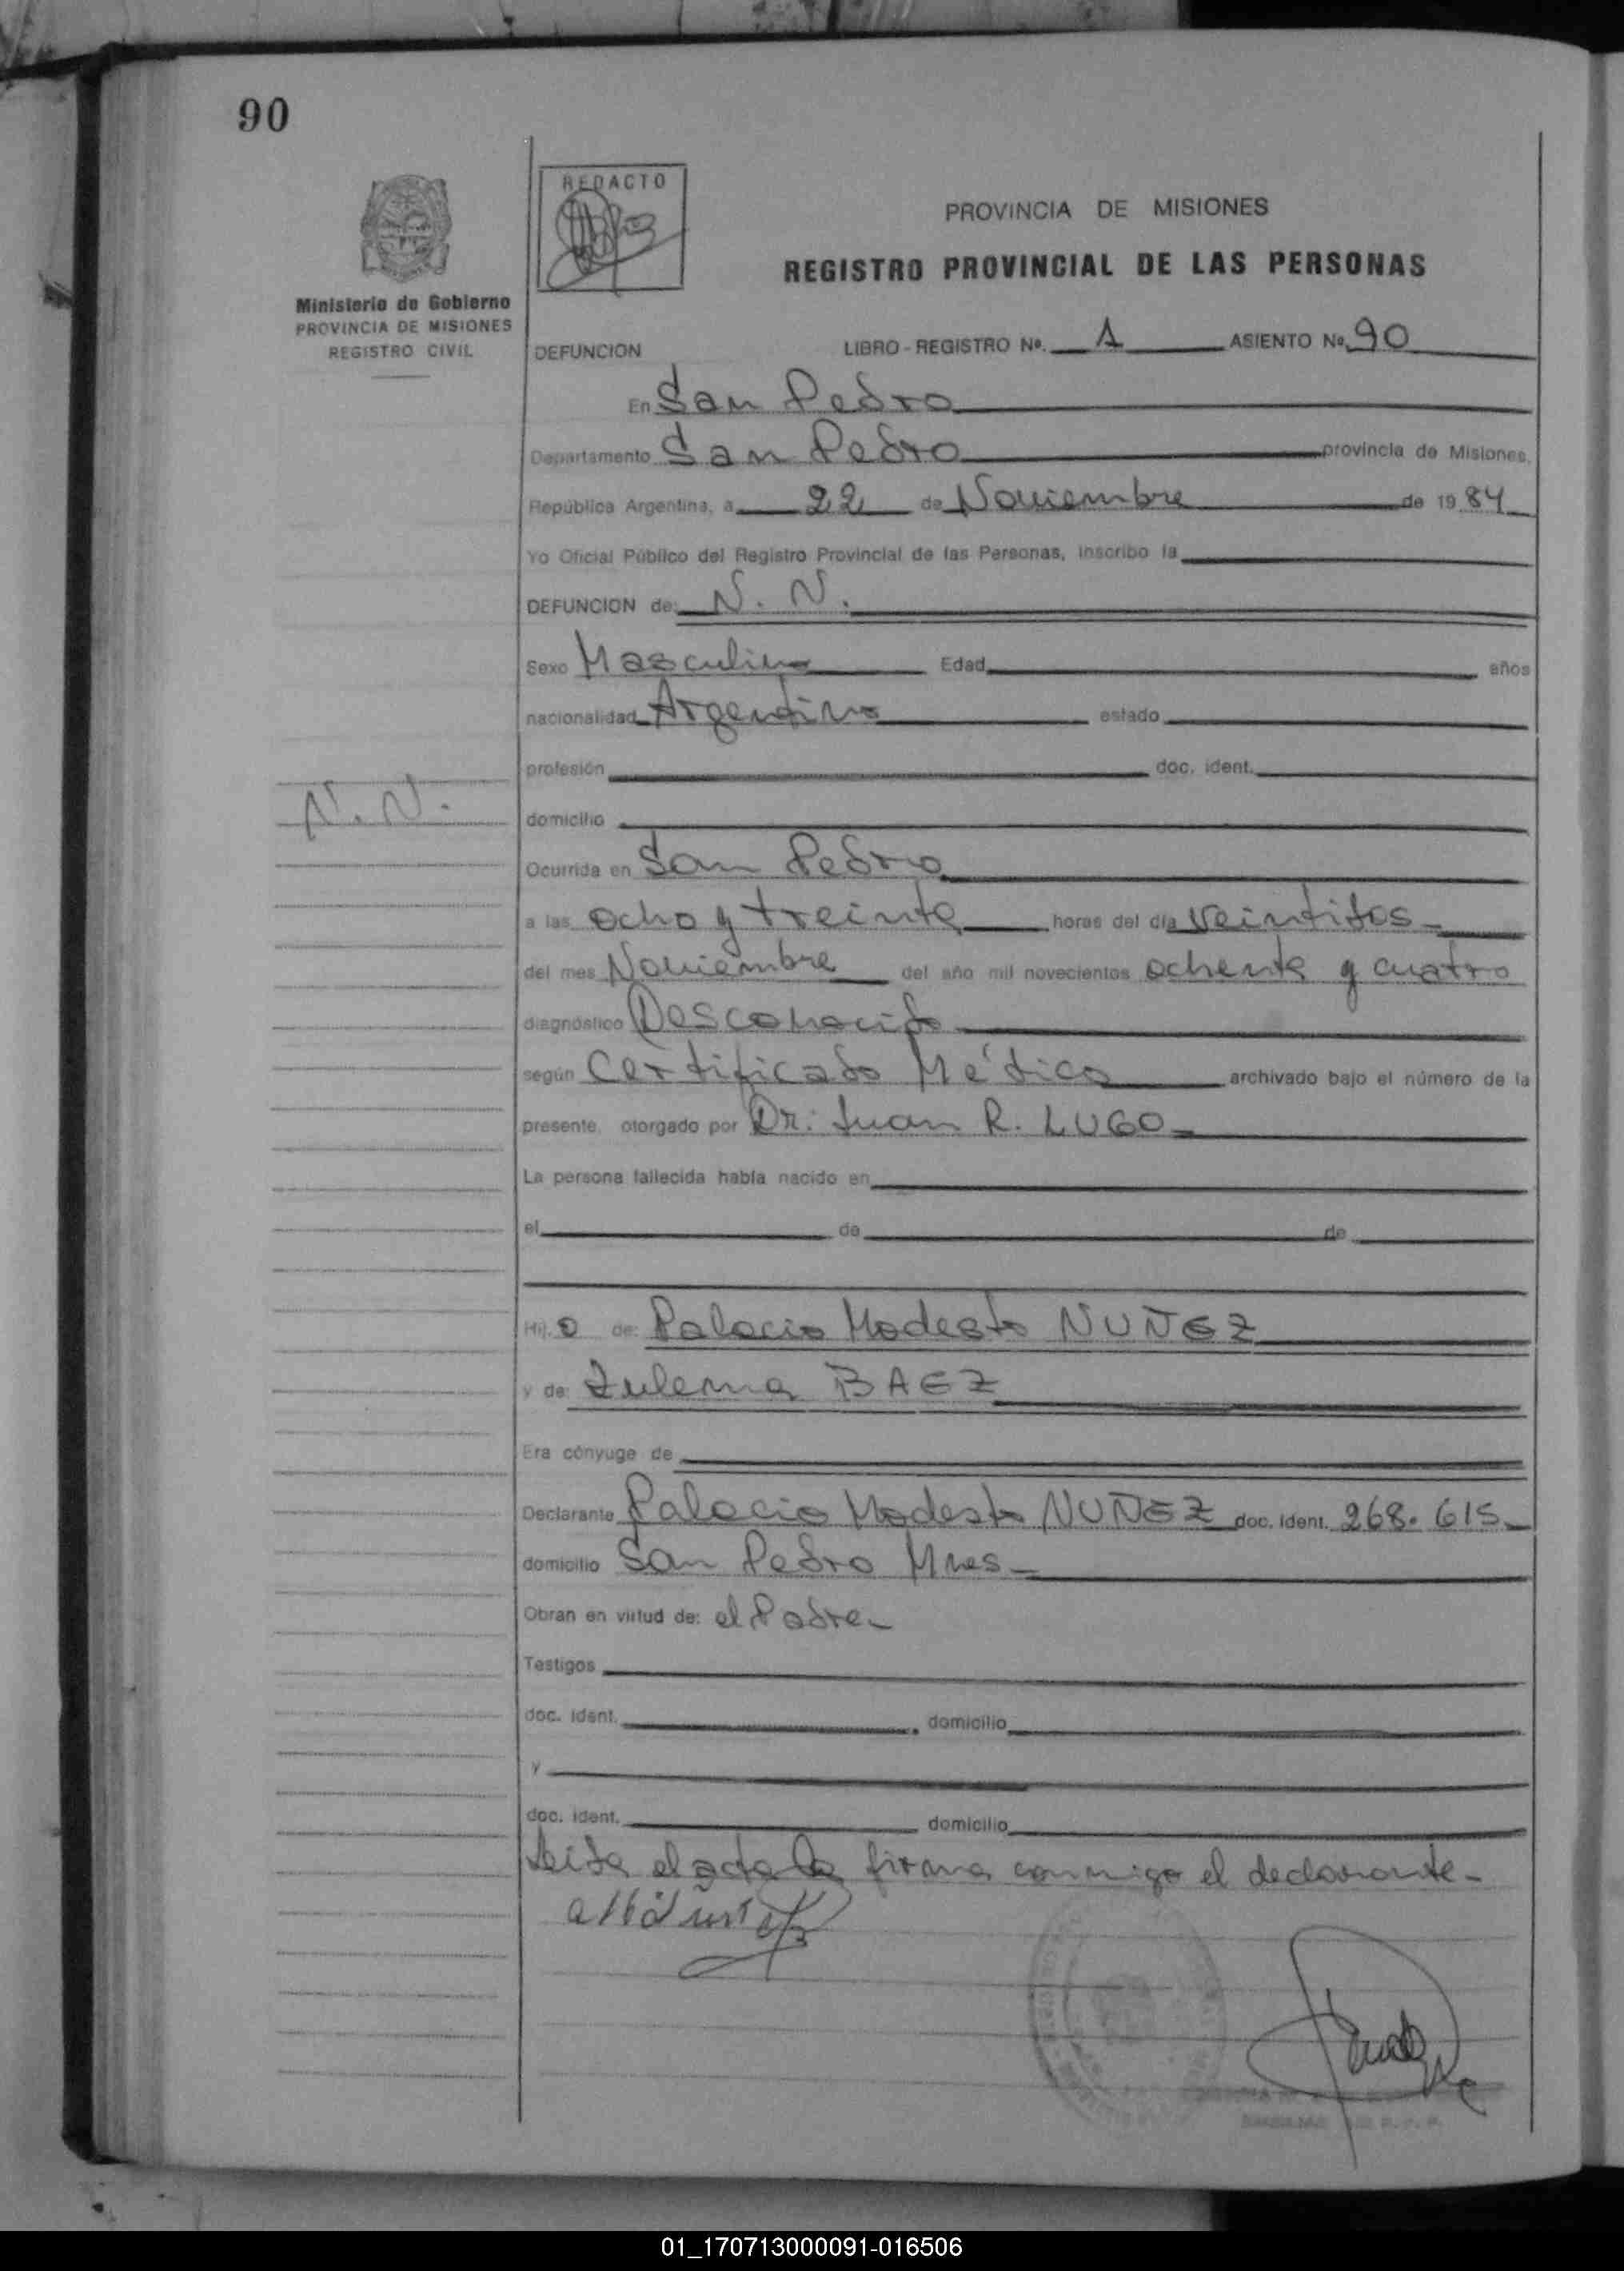 90
REDACTO
PROVINCIA DE MISIONES
REGISTRO PROVINCIAL DE LAS PERSONAS
Ministerio de Gobierno
PROVINCIA DE MISIONES
REGISTRO CIVIL
DEFUNCION LIBRO - REGISTRO Nº. 1 ASIENTO Nº. 90
En San Pedro
Departamento San Pedro provincia de Misiones,
República Argentina, a 22 de Noviembre de 1984
Yo Oficial Público del Registro Provincial de las Personas, inscribo la
DEFUNCION de: N. N.
Sexo Masculino Edad años
nacionalidad Argentino estado
profesión doc. ident.
N. N.
domicilio
Ocurrida en San Pedro
a las ocho y treinta horas del día veintidos
del mes Noviembre del año mil novecientos ochenta y cuatro
diagnóstico Desconocido
según Certificado Médico archivado bajo el número de la
presente, otorgado por Dr: Juan R. LUGO
La persona fallecida había nacido en
el de de
Hij o de: Palacio Modesto NUÑEZ
y de: Zulema BAEZ
Era cónyuge de
Declarante Palacio Modesto NUÑEZ doc. ident. 268.615
domicilio San Pedro Mnes
Obran en virtud de: el Padre
Testigos
doc. ident. domicilio
y
doc. ident. domicilio
Leida el acta la firma conmigo el declarante
01_170713000091-016506